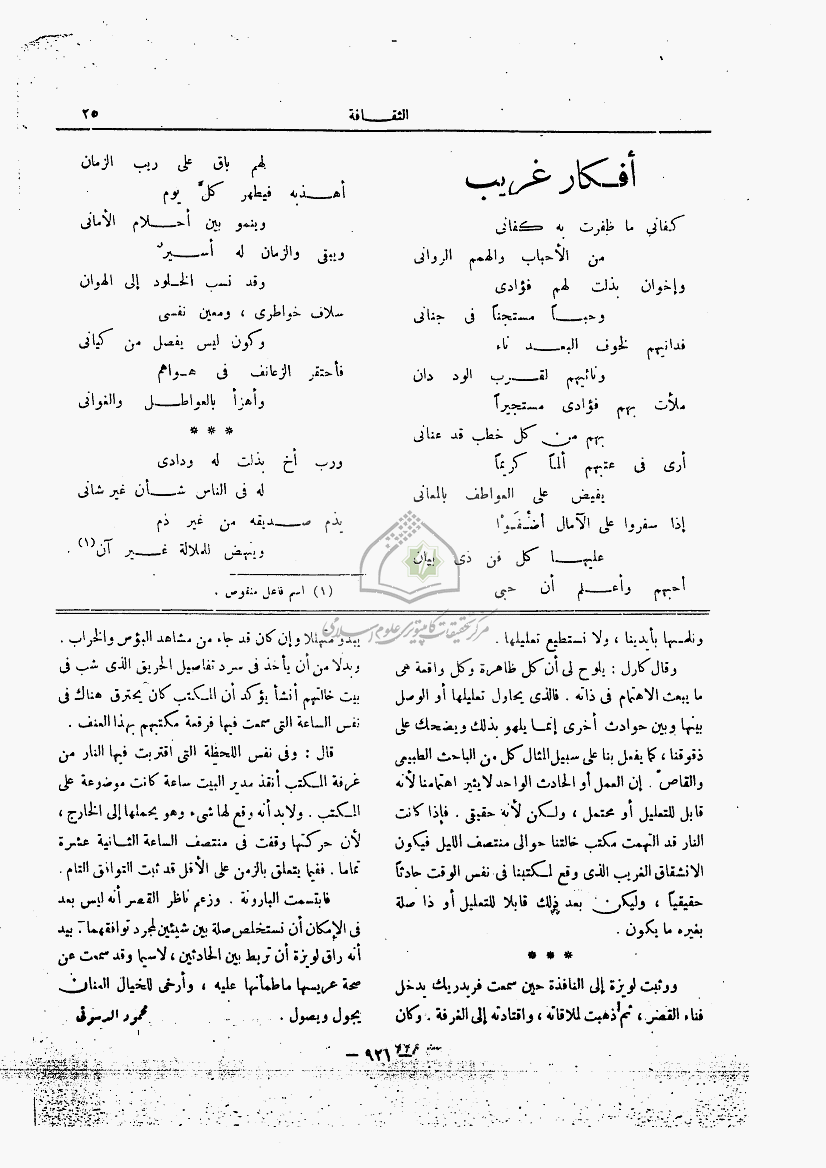 ٢٥
الثقـــافة
أفـكار غريب
كفاني ما ظفرت به كفانى
من الأحباب والهمم الروانى
وإخوان بذلت لهم فؤادى
وحبـــاً مستجناً فى جنانى
فدانيهم لخوف البعـــد ناء
ونائيهم لقـــرب الود دان
ملأت بهم فؤادى مستجيراً
بهم من كل خطب قد عنانى
أرى فى عتبهم ألماً كريماً
يفيض على العواطف بالمعانى
إذا سفروا على الآمال أضْفَوْا
عليهـــا كل فن ذى بيان
أحبهم وأعـــلم أن حبى
لهم باق على ريب الزمان
أهـــذبه فيطهر كلَّ يوم
وينمو بين أحـــلام الأمانى
ويبقى والزمان له أســـيرٌ
وقد نسب الخـلود إلى الهوان
سلاف خواطرى ، ومعين نفسى
وكون ليس يفصل من كيانى
فأحتقر الزعانف فى هـواهم
وأهزأ بالعواطـــل والغوانى
* * *
ورب أخ بذلت له ودادى
له فى الناس شـــأن غير شانى
يذم صـــديقه من غير ذم
وينهض للملالة غـــير آن(١) .
(١) اسم فاعل منقوص .
ونلمسها بأيدينا ، ولا نستطيع تعليلها .
وقال كارل : يلوح لى أن كل ظاهرة وكل واقعة هى
ما يبعث الاهتمام فى ذاته . فالذى يحاول تعليلها أو الوصل
بينها وبين حوادث أخرى إنما يلهو بذلك ويضحك على
ذقوقنا ، كما يفعل بنا على سبيل المثال كل من الباحث الطبيعى
والقاصّ . إن العمل أو الحادث الواحد لا يثير اهتمامنا لأنه
قابل للتعليل أو محتمل ، ولـكن لأنه حقيقى . فإذا كانت
النار قد التهمت مكتب خالتنا حوالى منتصف الليل فيكون
الانشقاق الغريب الذى وقع لمكتبنا فى نفس الوقت حادثاً
حقيقياً ، وليكن بعد ذلك قابلا للتعليل أو ذا صلة
بغيره ما يكون .
* * *
ووثبت لويزة إلى النافذة حين سمعت فريدريك يدخل
فناء القصر ، ثم ذهبت لملاقاته ، واقتادته إلى الغرفة . وكان
يبدو متهللا وإن كان قد جاء من مشاهد البؤس والخراب .
وبدلا من أن يأخذ فى سرد تفاصيل الحريق الذى شب فى
بيت خالتهم أنشأ يؤكد أن المكتب كان يحترق هناك فى
نفس الساعة التى سمعت فيها فرقعة مكتبهم بهذا العنف .
قال : وفى نفس اللحظة التى اقتربت فيها النار من
غرفة المكتب أنقذ مدير البيت ساعة كانت موضوعة على
المكتب . ولابد أنه وقع لها شىء وهو يحملها إلى الخارج ،
لأن حركتها وقفت فى منتصف الساعة الثانية عشرة
تماما . ففيما يتعلق بالزمن على الأقل قد ثبت التوافق التام .
فابتسمت البارونة . وزعم ناظر القصر أنه ليس بعد
فى الإمكان أن نستخلص صلة بين شيئين لمجرد توافقهما . بيد
أنه راق لويزة أن تربط بين الحادثين ، لاسيما وقد سمعت عن
صحة عريسها ما طمأنها عليه ، وأرخى للخيال العنان
يجول ويصول .
محمود الدسوقى
— ٩٢٦ —
مركز تحقيقات كامپيوترى علوم اسلامى